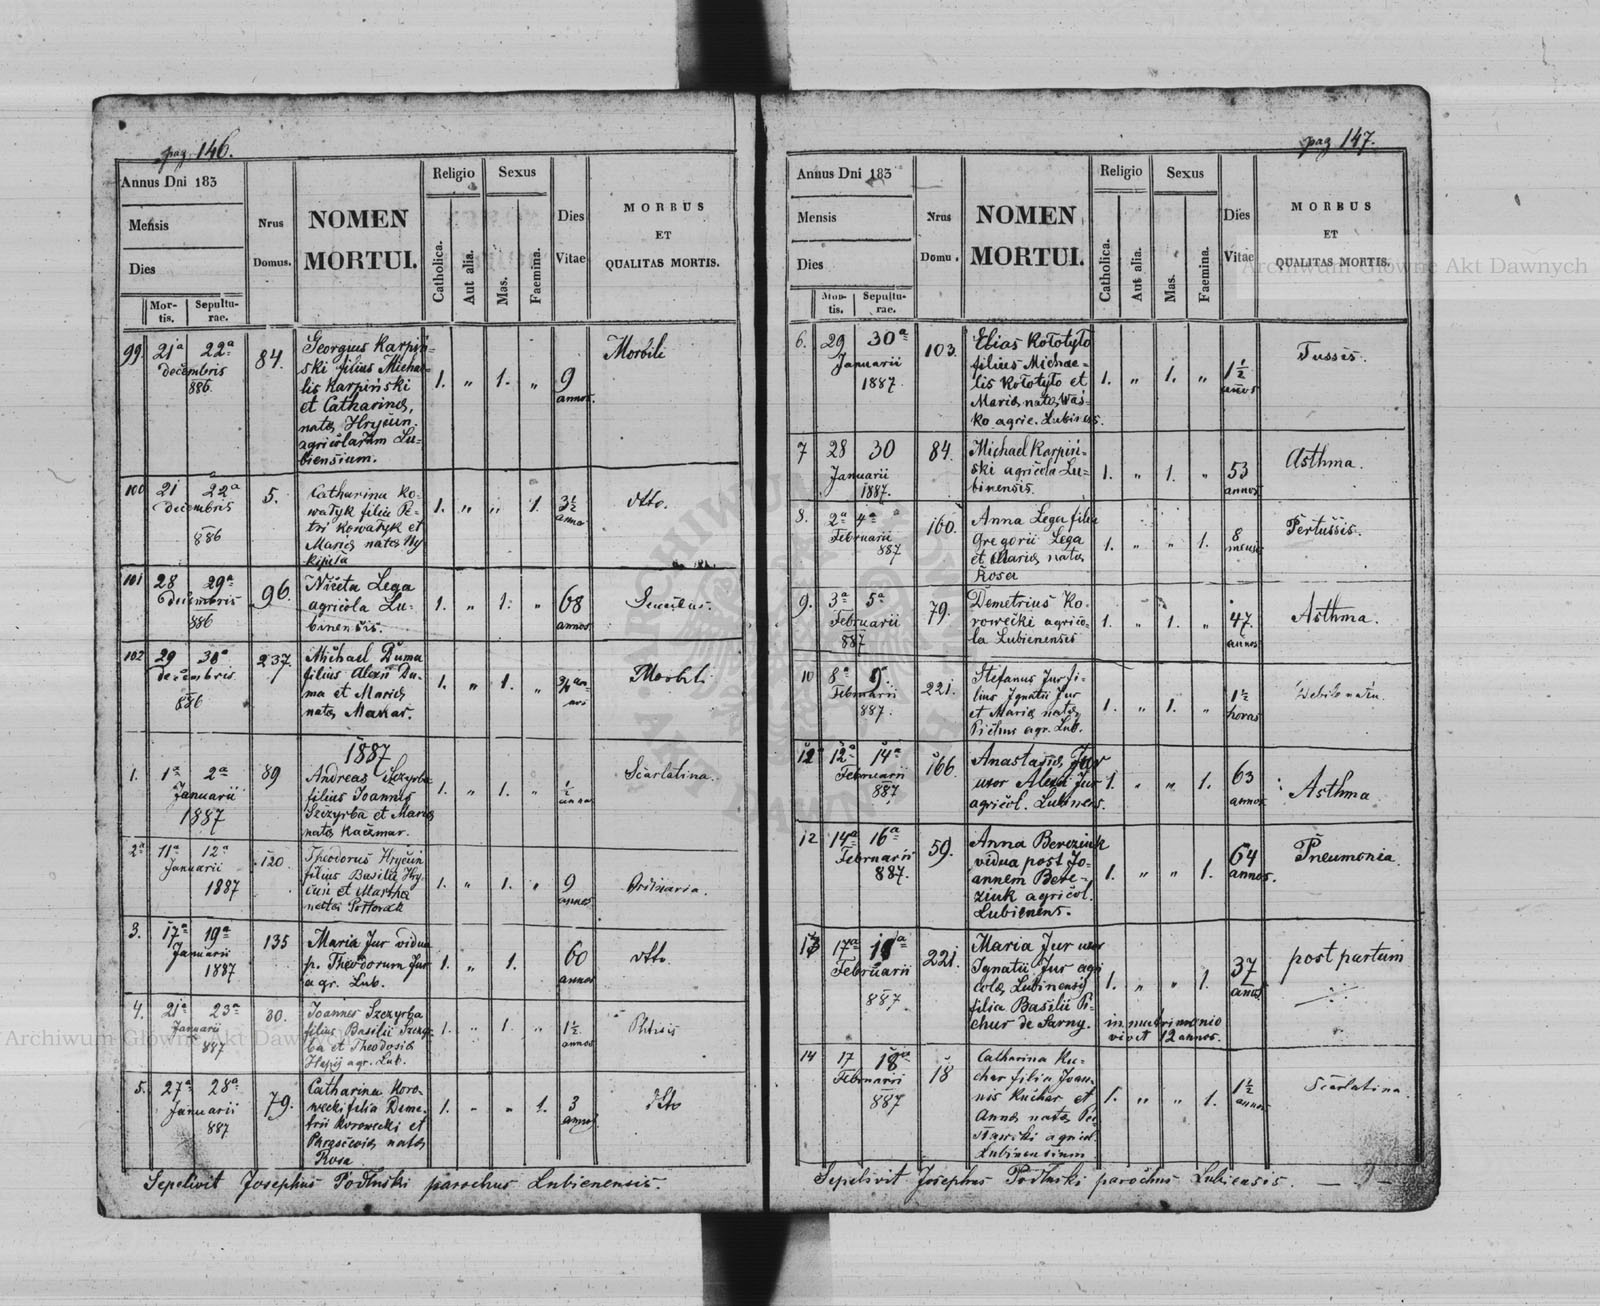 pag. 146.
Annus Dni 183
Mensis
Dies
Mor-
tis.
Sepultu-
rae.
Nrus
Domus.
NOMEN
MORTUI.
Religio
Catholica.
Aut alia.
Sexus
Mas.
Faemina.
Dies
Vitae
MORBUS
ET
QUALITAS MORTIS.
99. 21ª 22ª
decembris
886.
84.
Georgius Karpiń-
ski filius Micha-
lis Karpiński
et Catharina,
nata Hryciun
agricolarum Lu-
biensium.
1. „ 1. „
9
annos.
Morbili
100 21 22ª
decembris
886
5.
Catharina Ko-
watyk filia Pe-
tri Kowatyk et
Maria nata Hy
1. „ „ 1.
3½
annos
dtto.
101 28 29ª
decembris
886
96.
Niceta Lega
agricola Lu-
binensis.
1. „ 1. „
68
annos.
102 29 30ª
decembris
886
237.
Michael Duma
filius Alexii Du-
ma et Maria
nata Makar.
1. „ 1. „
Morbili
1887
1. 1ª 2ª
Januarii
1887
89
Andreas Szczyrba
filius Joannis
Szczyrba et Maria
nata Kaczmar.
1. „ 1. „
½
annos
Scarlatina.
2ª 11ª 12ª
Januarii
1887
120
Theodorus Hryciun
filius Basilii Hry-
ciun et Martha
nata Pottorak
1. „ 1. „
9
annos
Ordinaria.
3. 17ª 19ª
Januarii
1887
135
Maria Jur vidua
p. Theodorum Jur
agr. Lub.
1. „ 1.
60
annos
dtto.
4. 21ª 23ª
Januarii
887
80.
Joannes Szczyrba
filius Basilii Szczyr-
ba et Theodosia
agr. Lub.
1. „ 1. „
1½
annos
Phtisis
5. 27ª 28ª
Januarii
887
79.
Catharina Koro-
wecki filia Deme-
trii Korowecki et
Parascevia nata
Rosa
1. „ „ 1.
3
annos
dtto
Sepelivit Josephus Podłuski parochus Lubienensis.
pag 147.
Annus Dni 183
Mensis
Dies
Mor-
tis.
Sepultu-
rae.
Nrus
Domu.
NOMEN
MORTUI.
Religio
Catholica.
Aut alia.
Sexus
Mas.
Faemina.
Dies
Vitae
MORBUS
ET
QUALITAS MORTIS.
6. 29 30ª
Januarii
1887.
103.
Elias Kołotyło
filius Michae-
lis Kołotyło et
Maria nata Was-
ko agric. Lubinens.
1. „ 1. „
1½
annos
Tussis.
7 28 30
Januarii
1887.
84.
Michael Karpiń-
ski agricola Lu-
binensis.
1. „ 1. „
53
annos
Asthma.
8. 2ª 4ª
Februarii
887
160.
Anna Lega filia
Gregorii Lega
et Maria nata
Rosa
1. „ „ 1.
8
mensis
Pertussis.
9. 3ª 5ª
Februarii
887
79.
Demetrius Ko-
rowecki agrico-
la Lubienensis
1. „ 1. „
47.
annos
Asthma.
10 8ª 9ª
Februarii
887.
221.
Stefanus Jur fi-
lius Ignatii Jur
et Maria nata
Pichur agr. Lub.
1. „ 1. „
1½
horas
12 12ª 14ª
Februarii
887
166.
Anastasia Jur
uxor Alexii Jur
agricol. Lubinens.
1. „ „ 1.
63
annos.
Asthma
12 14ª 16ª
Februarii
887.
59.
Anna Bereziuk
vidua post Jo-
annem Bere-
ziuk agricol.
Lubienens.
1. „ „ 1.
64
annos.
Pneumonia.
13 17ª 18ª
Februarii
887
221.
Maria Jur uxor
Ignatii Jur agri
cola Lubinensis
filia Basilii Pi-
chur de Sarny.
1. „ „ 1.
in matrimonio
vivit 12 annos.
37
annos
post partum
14 17 18ª
Februarii
887
18
Catharina Ku-
char filia Joan-
nis Kuchar et
Anna nata Pe-
agricol.
Lubinensium
1. „ „ 1.
1½
annos
Scarlatina.
Sepelivit Josephus Podłuski parochus Lubiensis.
Archiwum Główne Akt Dawnych
Archiwum Główne Akt Dawnych